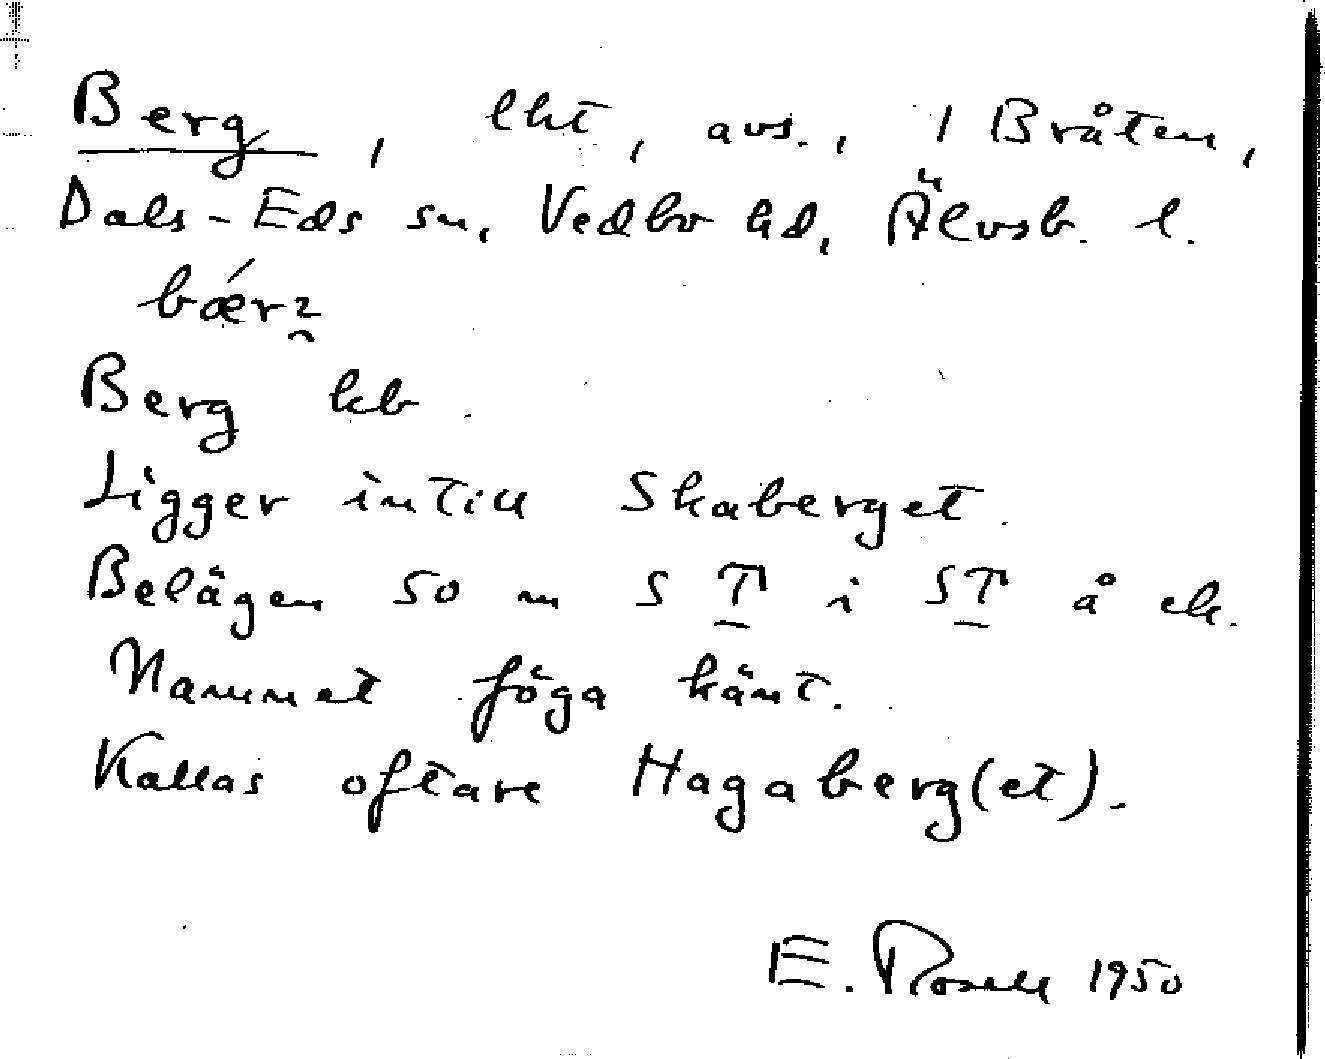 Berg, lht, avs., 1 Bråten,
Dals-Eds sn, Vedbo hd, Älvsb. l.
bǽrʒ̑
Berg kb
Ligger intill Skaberget.
Belägen 50 m S T i ST å ek.
Namnet föga känt.
Kallas oftare Hagaberg(et).
E. Rosell 1950